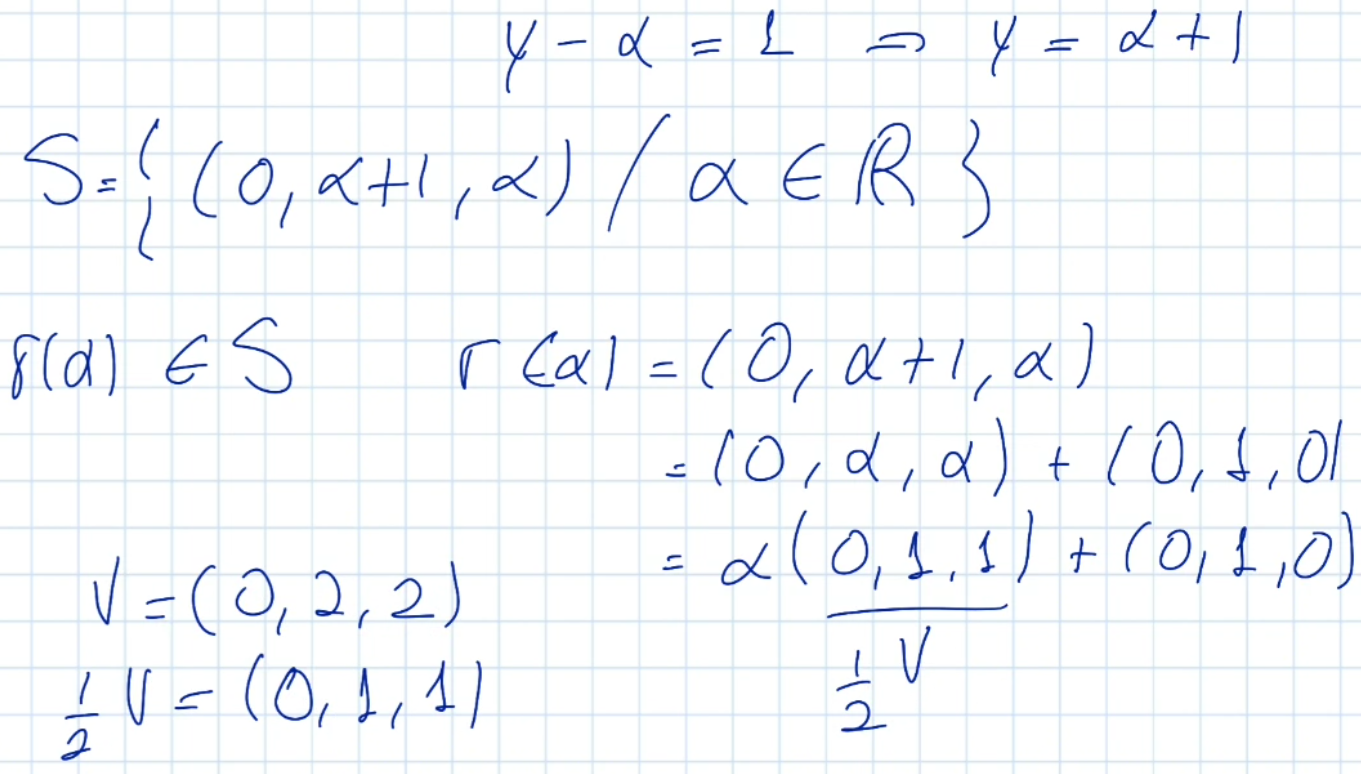 y - α = 1 ⇒ y = α + 1
S = { (0, α+1, α) / α ∈ ℝ }
r(α) ∈ S r(α) = (0, α+1, α)
= (0, α, α) + (0, 1, 0)
= α(0, 1, 1) + (0, 1, 0)
V = (0, 2, 2)
½ V
½ V = (0, 1, 1)